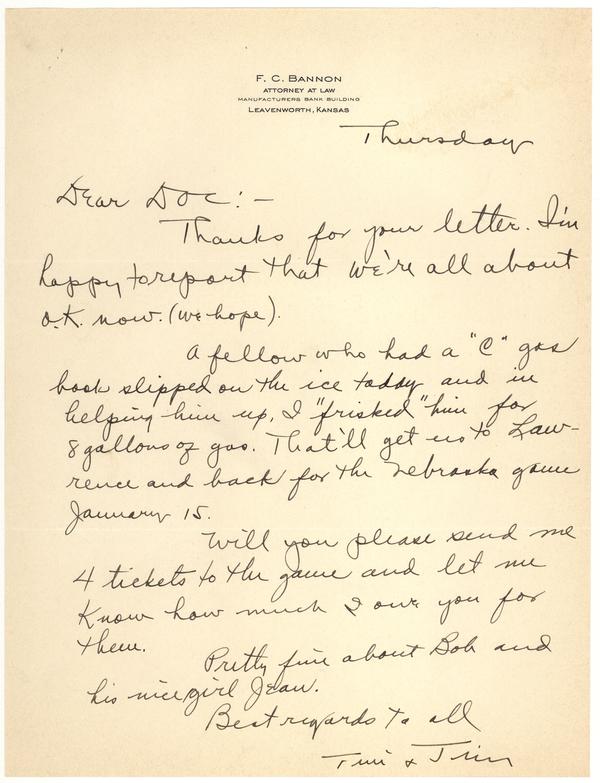 F. C. BANNON
ATTORNEY AT LAW
MANUFACTURERS BANK BUILDING
LEAVENWORTH, KANSAS
Thursday
Dear Doc:-
Thanks for your letter. I'm
happy to report that we're all about
O.K. now. (we hope).
A fellow who had a "C" gas
book slipped on the ice today and in
helping him up, I "frisked" him for
8 gallons of gas. That'll get us to Law-
rence and back for the Nebraska game
January 15.
Will you please send me
4 tickets to the game and let me
know how much I owe you for
them.
Pretty fine about Bob and
his nice girl Jean.
Best regards to all
Tim & Trin